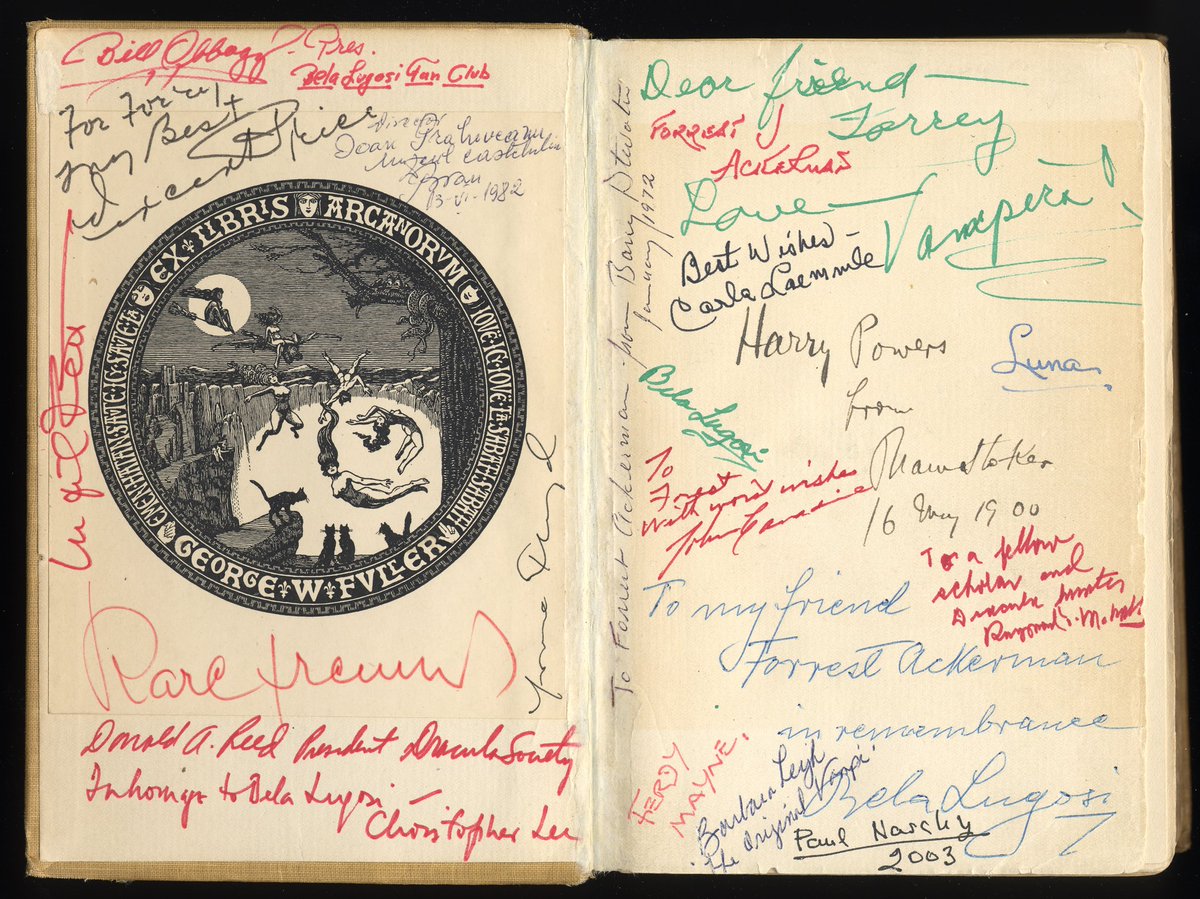 Bill Obbagy. Pres.
Bela Lugosi Fan Club
For Forry
My Best
Vincent Price
Director
Muzeul
Bran
13-VI-1982
EX LIBRIS ARCANORVM
GEORGE W FVLLER
Karl Freund
Donald A. Reed President Dracula Society
In homage to Bela Lugosi —
Christopher Lee
To Forrest Ackerman from Barry Atwater
January 1972
Dear friend —
Forrey
Love — Vampira!
FORREST J
ACKERMAN
Best Wishes —
Carla Laemmle
Harry Powers
from
Bram Stoker
16 May 1900
Luna
Bela Lugosi
To
Forrest
With warm wishes
John Carradine
To a fellow
scholar and
Dracula hunter
Raymond T. McNally
To my friend
Forrest Ackerman
in remembrance
Bela Lugosi
FERDY
MAYNE.
Barbara Leigh
"The Original Vampi"
Paul Naschy
2003